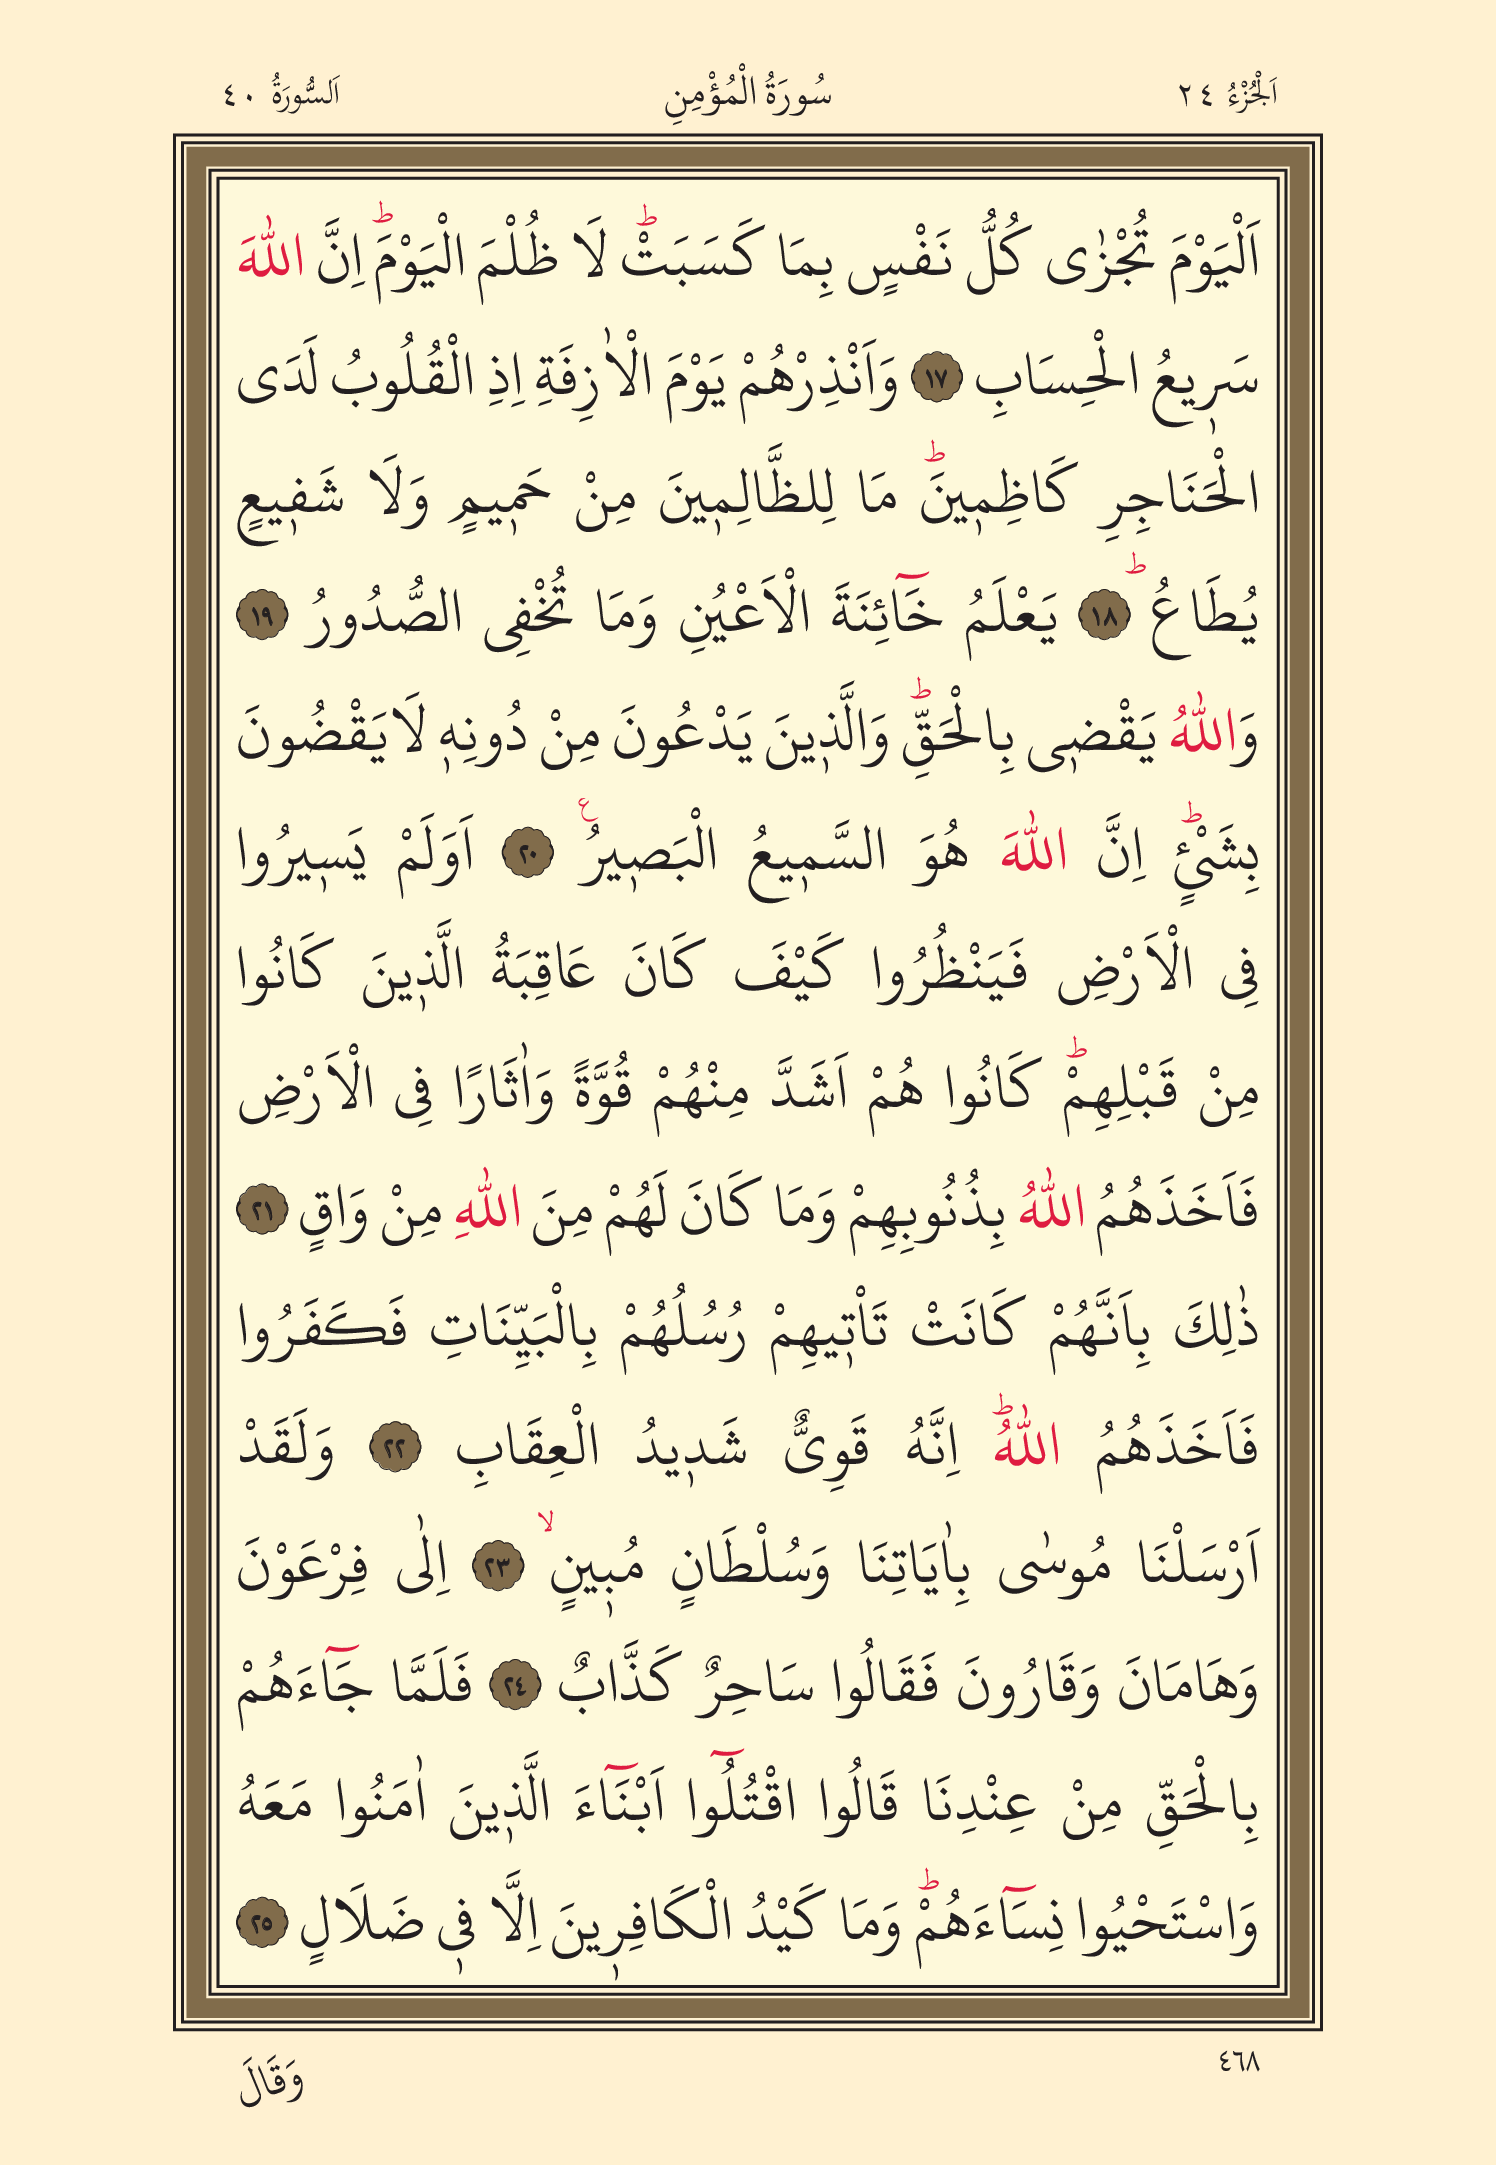 اَلْجُزْءُ ٢٤ سُورَةُ الْمُؤْمِنِ اَلسُّورَةُ ٤٠
اَلْيَوْمَ تُجْزٰى كُلُّ نَفْسٍ بِمَا كَسَبَتْۜ لَا ظُلْمَ الْيَوْمَۜ اِنَّ اللّٰهَ
سَر۪يعُ الْحِسَابِ ١٧ وَاَنْذِرْهُمْ يَوْمَ الْاٰزِفَةِ اِذِ الْقُلُوبُ لَدَى
الْحَنَاجِرِ كَاظِم۪ينَۜ مَا لِلظَّالِم۪ينَ مِنْ حَم۪يمٍ وَلَا شَف۪يعٍ
يُطَاعُۜ ١٨ يَعْلَمُ خَٓائِنَةَ الْاَعْيُنِ وَمَا تُخْفِى الصُّدُورُ ١٩
وَاللّٰهُ يَقْض۪ى بِالْحَقِّۜ وَالَّذ۪ينَ يَدْعُونَ مِنْ دُونِه۪ لَا يَقْضُونَ
بِشَىْءٍۜ اِنَّ اللّٰهَ هُوَ السَّم۪يعُ الْبَص۪يرُ۟ ٢٠ اَوَلَمْ يَس۪يرُوا
فِى الْاَرْضِ فَيَنْظُرُوا كَيْفَ كَانَ عَاقِبَةُ الَّذ۪ينَ كَانُوا
مِنْ قَبْلِهِمْۜ كَانُوا هُمْ اَشَدَّ مِنْهُمْ قُوَّةً وَاٰثَارًا فِى الْاَرْضِ
فَاَخَذَهُمُ اللّٰهُ بِذُنُوبِهِمْ وَمَا كَانَ لَهُمْ مِنَ اللّٰهِ مِنْ وَاقٍ ٢١
ذٰلِكَ بِاَنَّهُمْ كَانَتْ تَاْت۪يهِمْ رُسُلُهُمْ بِالْبَيِّنَاتِ فَكَفَرُوا
فَاَخَذَهُمُ اللّٰهُۜ اِنَّهُ قَوِىٌّ شَد۪يدُ الْعِقَابِ ٢٢ وَلَقَدْ
اَرْسَلْنَا مُوسٰى بِاٰيَاتِنَا وَسُلْطَانٍ مُب۪ينٍۙ ٢٣ اِلٰى فِرْعَوْنَ
وَهَامَانَ وَقَارُونَ فَقَالُوا سَاحِرٌ كَذَّابٌ ٢٤ فَلَمَّا جَٓاءَهُمْ
بِالْحَقِّ مِنْ عِنْدِنَا قَالُوا اقْتُلُٓوا اَبْنَٓاءَ الَّذ۪ينَ اٰمَنُوا مَعَهُ
وَاسْتَحْيُوا نِسَٓاءَهُمْۜ وَمَا كَيْدُ الْكَافِر۪ينَ اِلَّا ف۪ى ضَلَالٍ ٢٥
٤٦٨ وَقَالَ